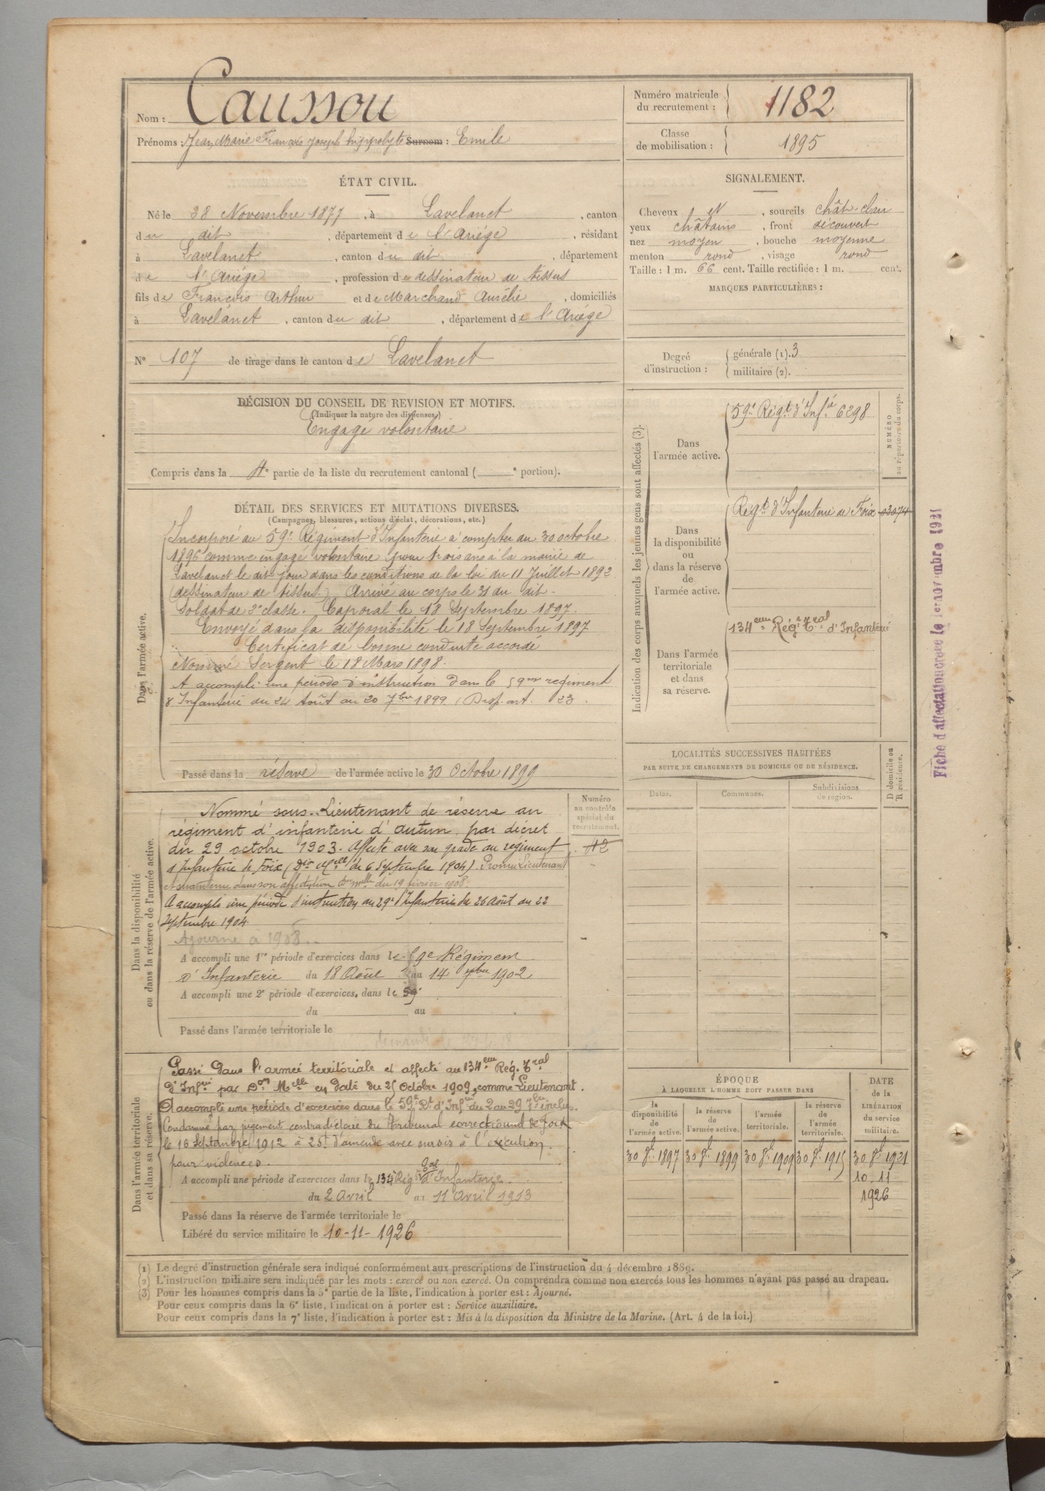 Nom : Caussou
Prénoms : Jean Marie François Joseph Hippolyte Surnom : Emile
Numéro matricule
du recrutement : 1182
Classe
de mobilisation : 1895
ÉTAT CIVIL.
Né le 28 Novembre 1877, à Lavelanet, canton
du dit, département de l'Ariége, résidant
à Lavelanet, canton du dit, département
de l'Ariége, profession de dessinateur de tissus
fils de François Arthur et de Marchand Aurélie, domiciliés
à Lavelanet, canton du dit, département de l'Ariége
N° 107 de tirage dans le canton de Lavelanet
SIGNALEMENT.
Cheveux et, sourcils chât-clair
yeux châtains, front découvert
nez moyen, bouche moyenne
menton rond, visage rond
Taille : 1 m. 66 cent. Taille rectifiée : 1 m. cent.
MARQUES PARTICULIÈRES :
Degré
d'instruction : générale (1). 3
militaire (2).
DÉCISION DU CONSEIL DE REVISION ET MOTIFS.
(Indiquer la nature des dispenses.)
Engagé volontaire
Compris dans la 4e partie de la liste du recrutement cantonal ( e portion).
DÉTAIL DES SERVICES ET MUTATIONS DIVERSES.
(Campagnes, blessures, actions d'éclat, décorations, etc.)
Dans l'armée active.
Incorporé au 59e Régiment d'Infanterie à compter du 30 octobre
1896 comme engagé volontaire pour trois ans à la mairie de
Lavelanet le dit jour dans les conditions de la loi du 11 Juillet 1892
(dessinateur de tissus). Arrivé au corps le 31 du dit.
Soldat de 2e classe. Caporal le 18 Septembre 1897.
Envoyé dans la disponibilité le 18 Septembre 1897
Certificat de bonne conduite accordé
Nommé Sergent le 18 Mars 1898.
A accompli une période d'instruction dans le 59me régiment
d'Infanterie du 24 Août au 20 7bre 1899 (Disp. art. 23
Passé dans la réserve de l'armée active le 30 Octobre 1899
Indication des corps auxquels les jeunes gens sont affectés (3).
NUMÉRO
au répertoire du corps.
Dans
l'armée active.
59e Régt d'Infie 6298
Dans
la disponibilité
ou
dans la réserve
de
l'armée active.
Régt d'Infanterie de Foix 02074
Dans l'armée
territoriale
et dans
sa réserve.
134eme Régt Tral d'Infanterie
LOCALITÉS SUCCESSIVES HABITÉES
PAR SUITE DE CHANGEMENTS DE DOMICILE OU DE RÉSIDENCE.
Dates.
Communes.
Subdivisions
de région.
D domicile ou
R résidence.
Dans la disponibilité
ou dans la réserve de l'armée active.
Numéro
au contrôle
spécial du
recrutement.
Nommé sous-Lieutenant de réserve au
régiment d'infanterie d'Autun par décret
du 29 octobre 1903. Affecté avec son grade au régiment
d'Infanterie de Foix du 6 Septembre 1904). Promu Lieutenant
et maintenu dans son affectation du 19 février 1908.
A accompli une période d'instruction au 29e d'Infanterie du 26 Août au 22
Septembre 1904
Ajourné à 1908.
A accompli une 1re période d'exercices dans le 59e Régiment
d'Infanterie du 18 Août au 14 7bre 1902
A accompli une 2e période d'exercices, dans le 59e
du au
Passé dans l'armée territoriale le
Dans l'armée territoriale
et dans sa réserve.
Passé dans l'armée territoriale et affecté au 134eme Rég. Tral
d'Infrie par Don Melle en daté du 25 Octobre 1909, comme Lieutenant.
A accompli une période d'exercices dans le 59e Rt d'Infrie du 2 au 29 inclus.
Condamné par jugement contradictoire du Tribunal correctionnel de Foix
le 18 septembre 1912 à 25f d'amende avec sursis à l'exécution
pour violences.
A accompli une période d'exercices dans le 134 Régt Tral d'Infanterie
du 2 Avril au 11 Avril 1913
Passé dans la réserve de l'armée territoriale le
Libéré du service militaire le 10-11-1926
ÉPOQUE
À LAQUELLE L'HOMME DOIT PASSER DANS
la
disponibilité
de
l'armée active.
la réserve
de
l'armée active.
l'armée
territoriale.
la réserve
de
l'armée
territoriale.
DATE
de la
LIBÉRATION
du service
militaire.
30 8l 1897
30 8l 1899
30 8l 1909
30 8l 1915
30 8l 1921
10-11-
1926
Fiche d'affectation créée le 1er novembre 1921
(1) Le degré d'instruction générale sera indiqué conformément aux prescriptions de l'instruction du 4 décembre 1889.
(2) L'instruction militaire sera indiquée par les mots : exercé ou non exercé. On comprendra comme non exercés tous les hommes n'ayant pas passé au drapeau.
(3) Pour les hommes compris dans la 5e partie de la liste, l'indication à porter est : Ajourné.
Pour ceux compris dans la 6e liste, l'indication à porter est : Service auxiliaire.
Pour ceux compris dans la 7e liste, l'indication à porter est : Mis à la disposition du Ministre de la Marine. (Art. 4 de la loi.)